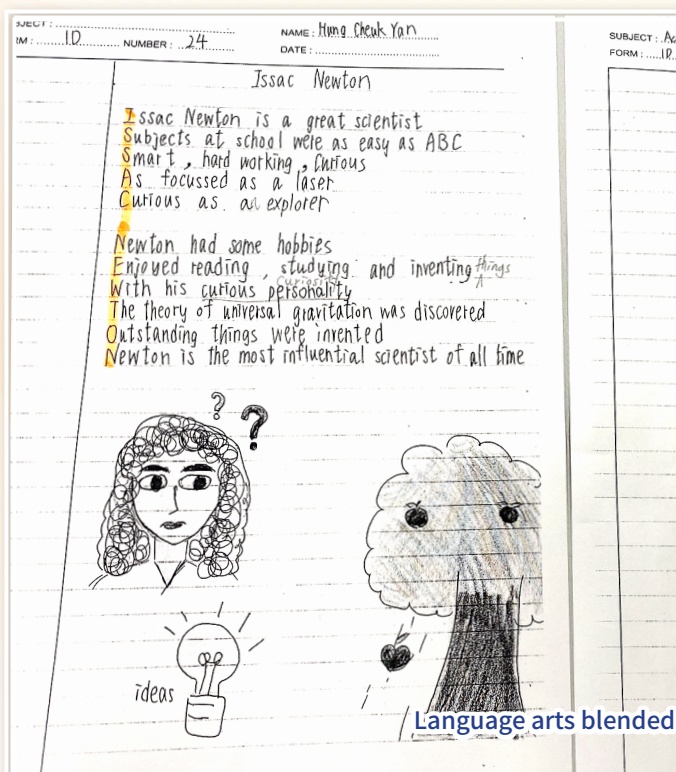 SUBJECT :
NAME : Hung Cheuk Yan
FORM : 1D NUMBER : 24
DATE :
SUBJECT :
FORM :
Issac Newton
Issac Newton is a great scientist
Subjects at school were as easy as ABC
Smart , hard working , Curious
As focussed as a laser
Curious as an explorer
Newton had some hobbies
Enjoyed reading , studying and inventing things
With his curious personality
curiosity
The theory of universal gravitation was discovered
Outstanding things were invented
Newton is the most influential scientist of all time
? ?
ideas
Language arts blended